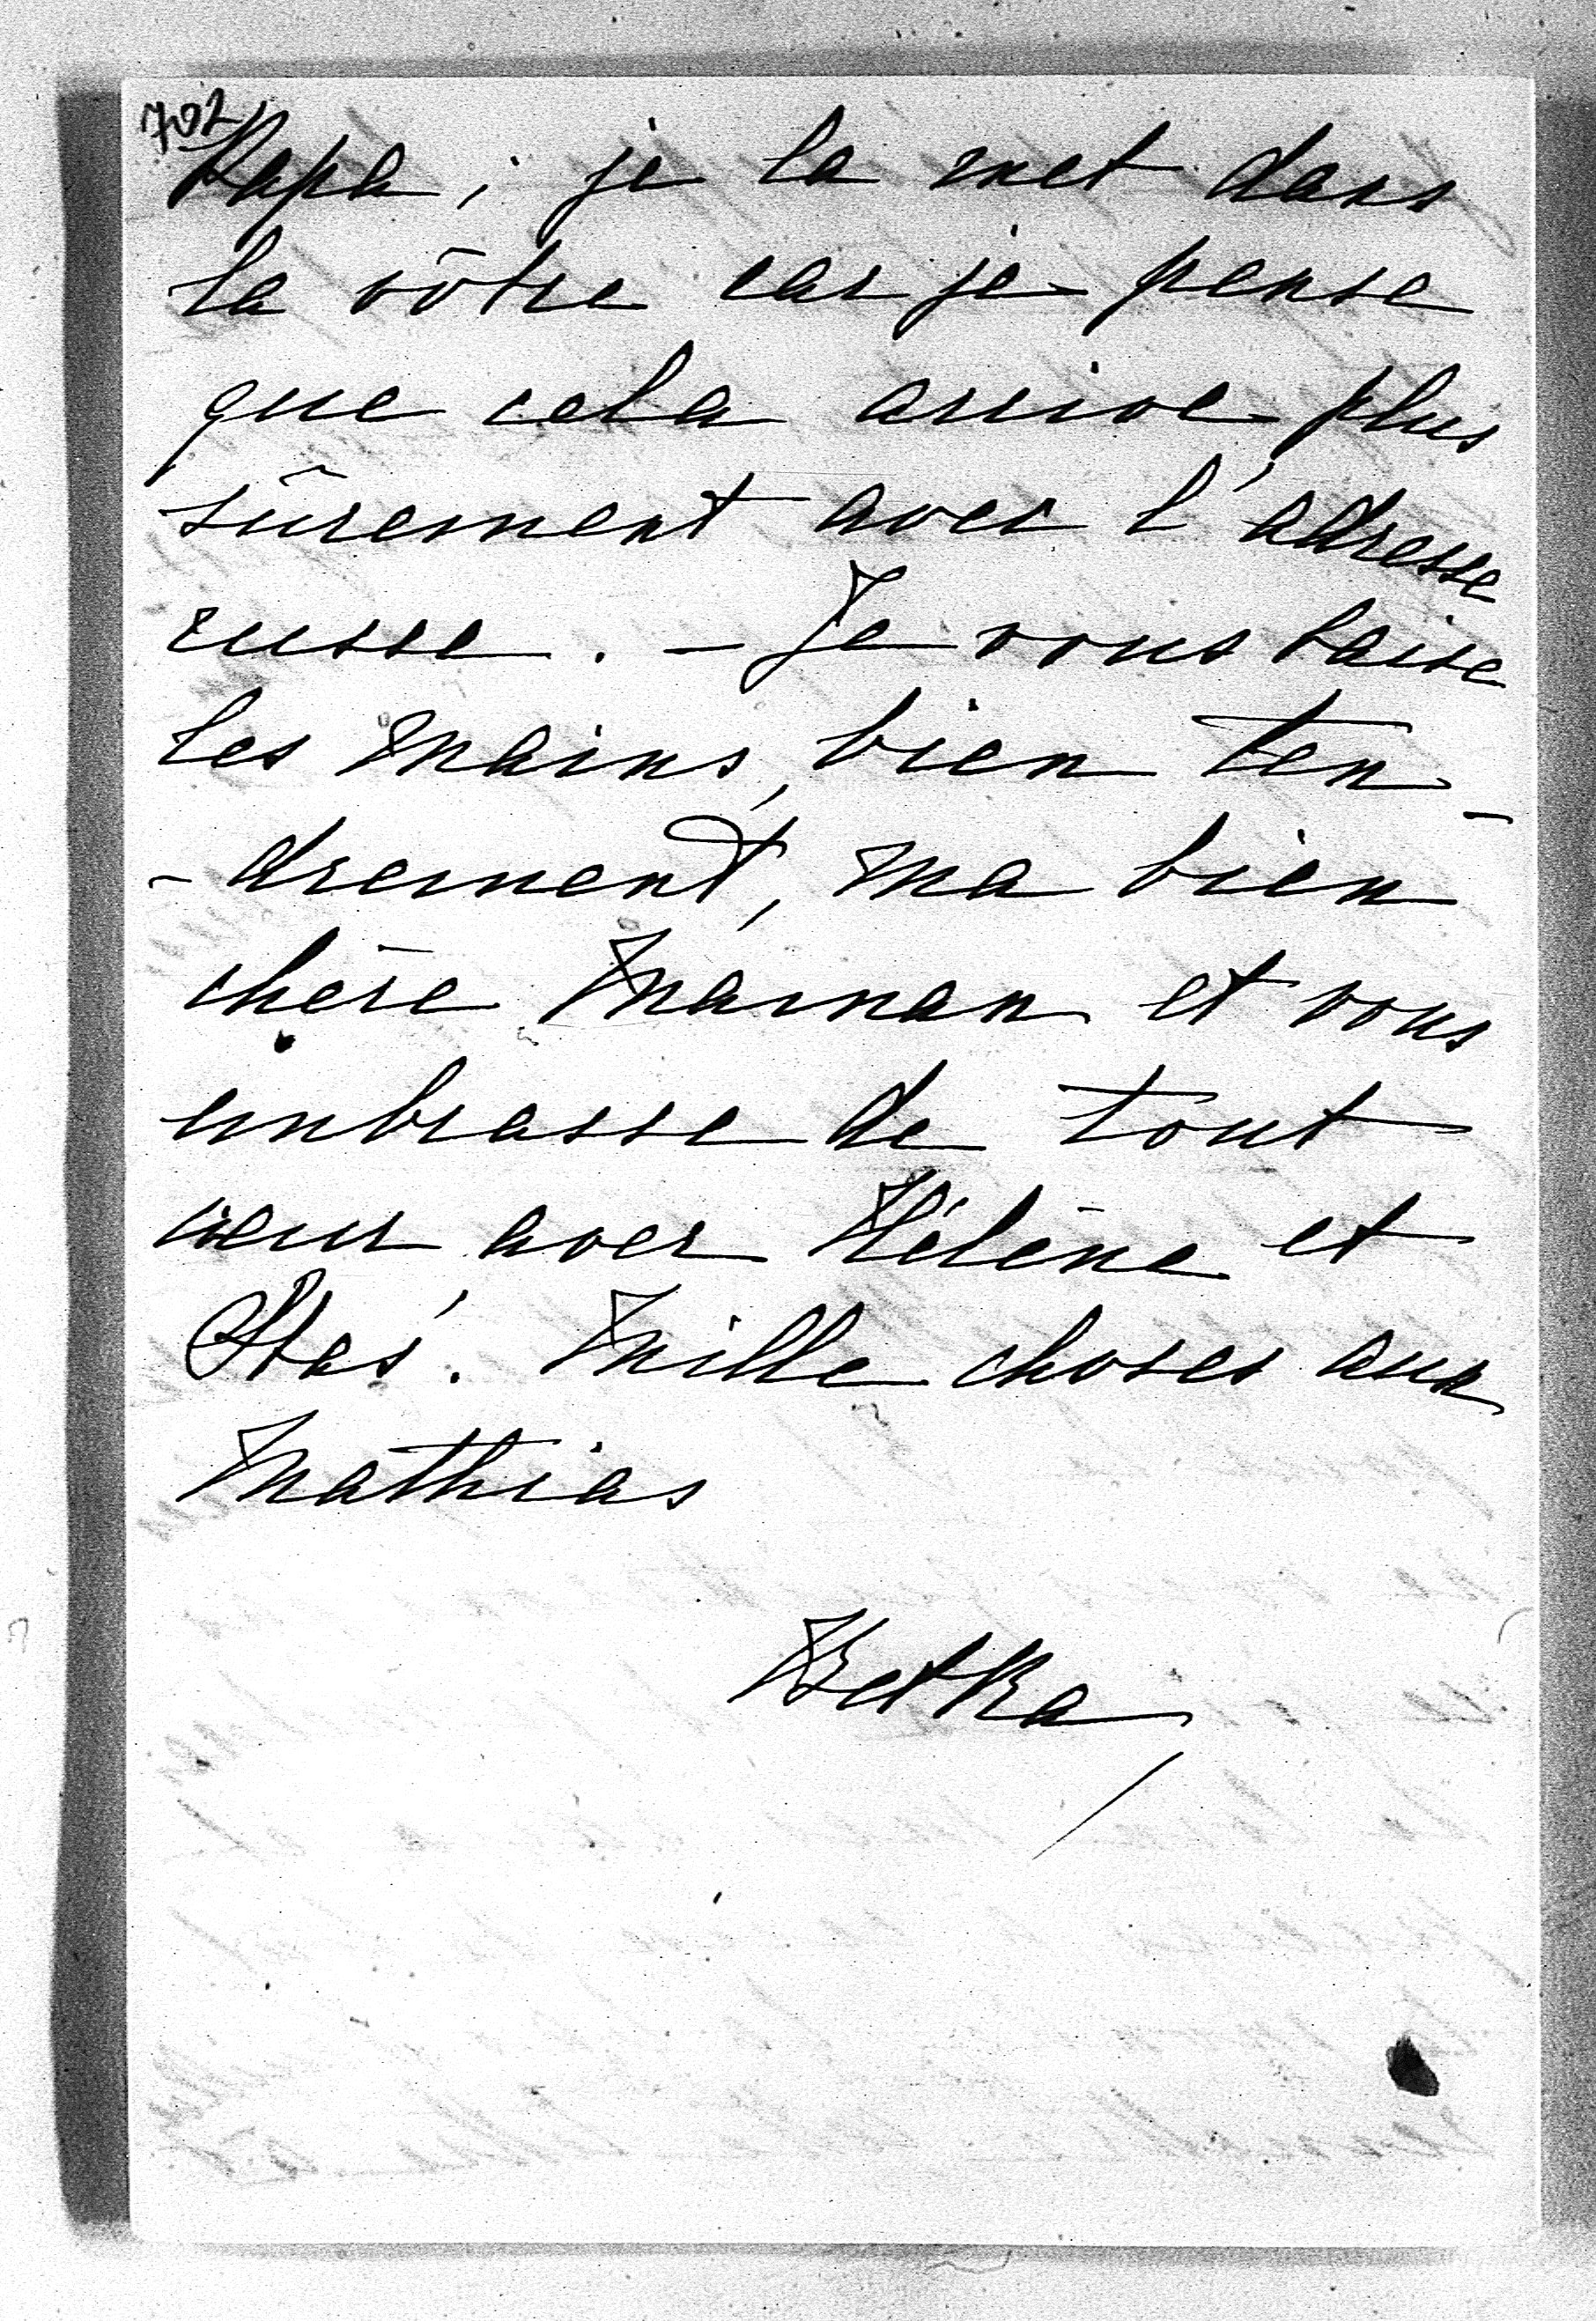 702
Papa; je la met dans
la vôtre car je pense
que cela arrive plus
sûrement avec l'adresse
russe. — Je vous baise
les mains, bien ten-
-drement, ma bien
chère Maman et vous
embrasse de tout
cœur avec Hélène et
Staś. Mille choses aux
Mathias
Betka